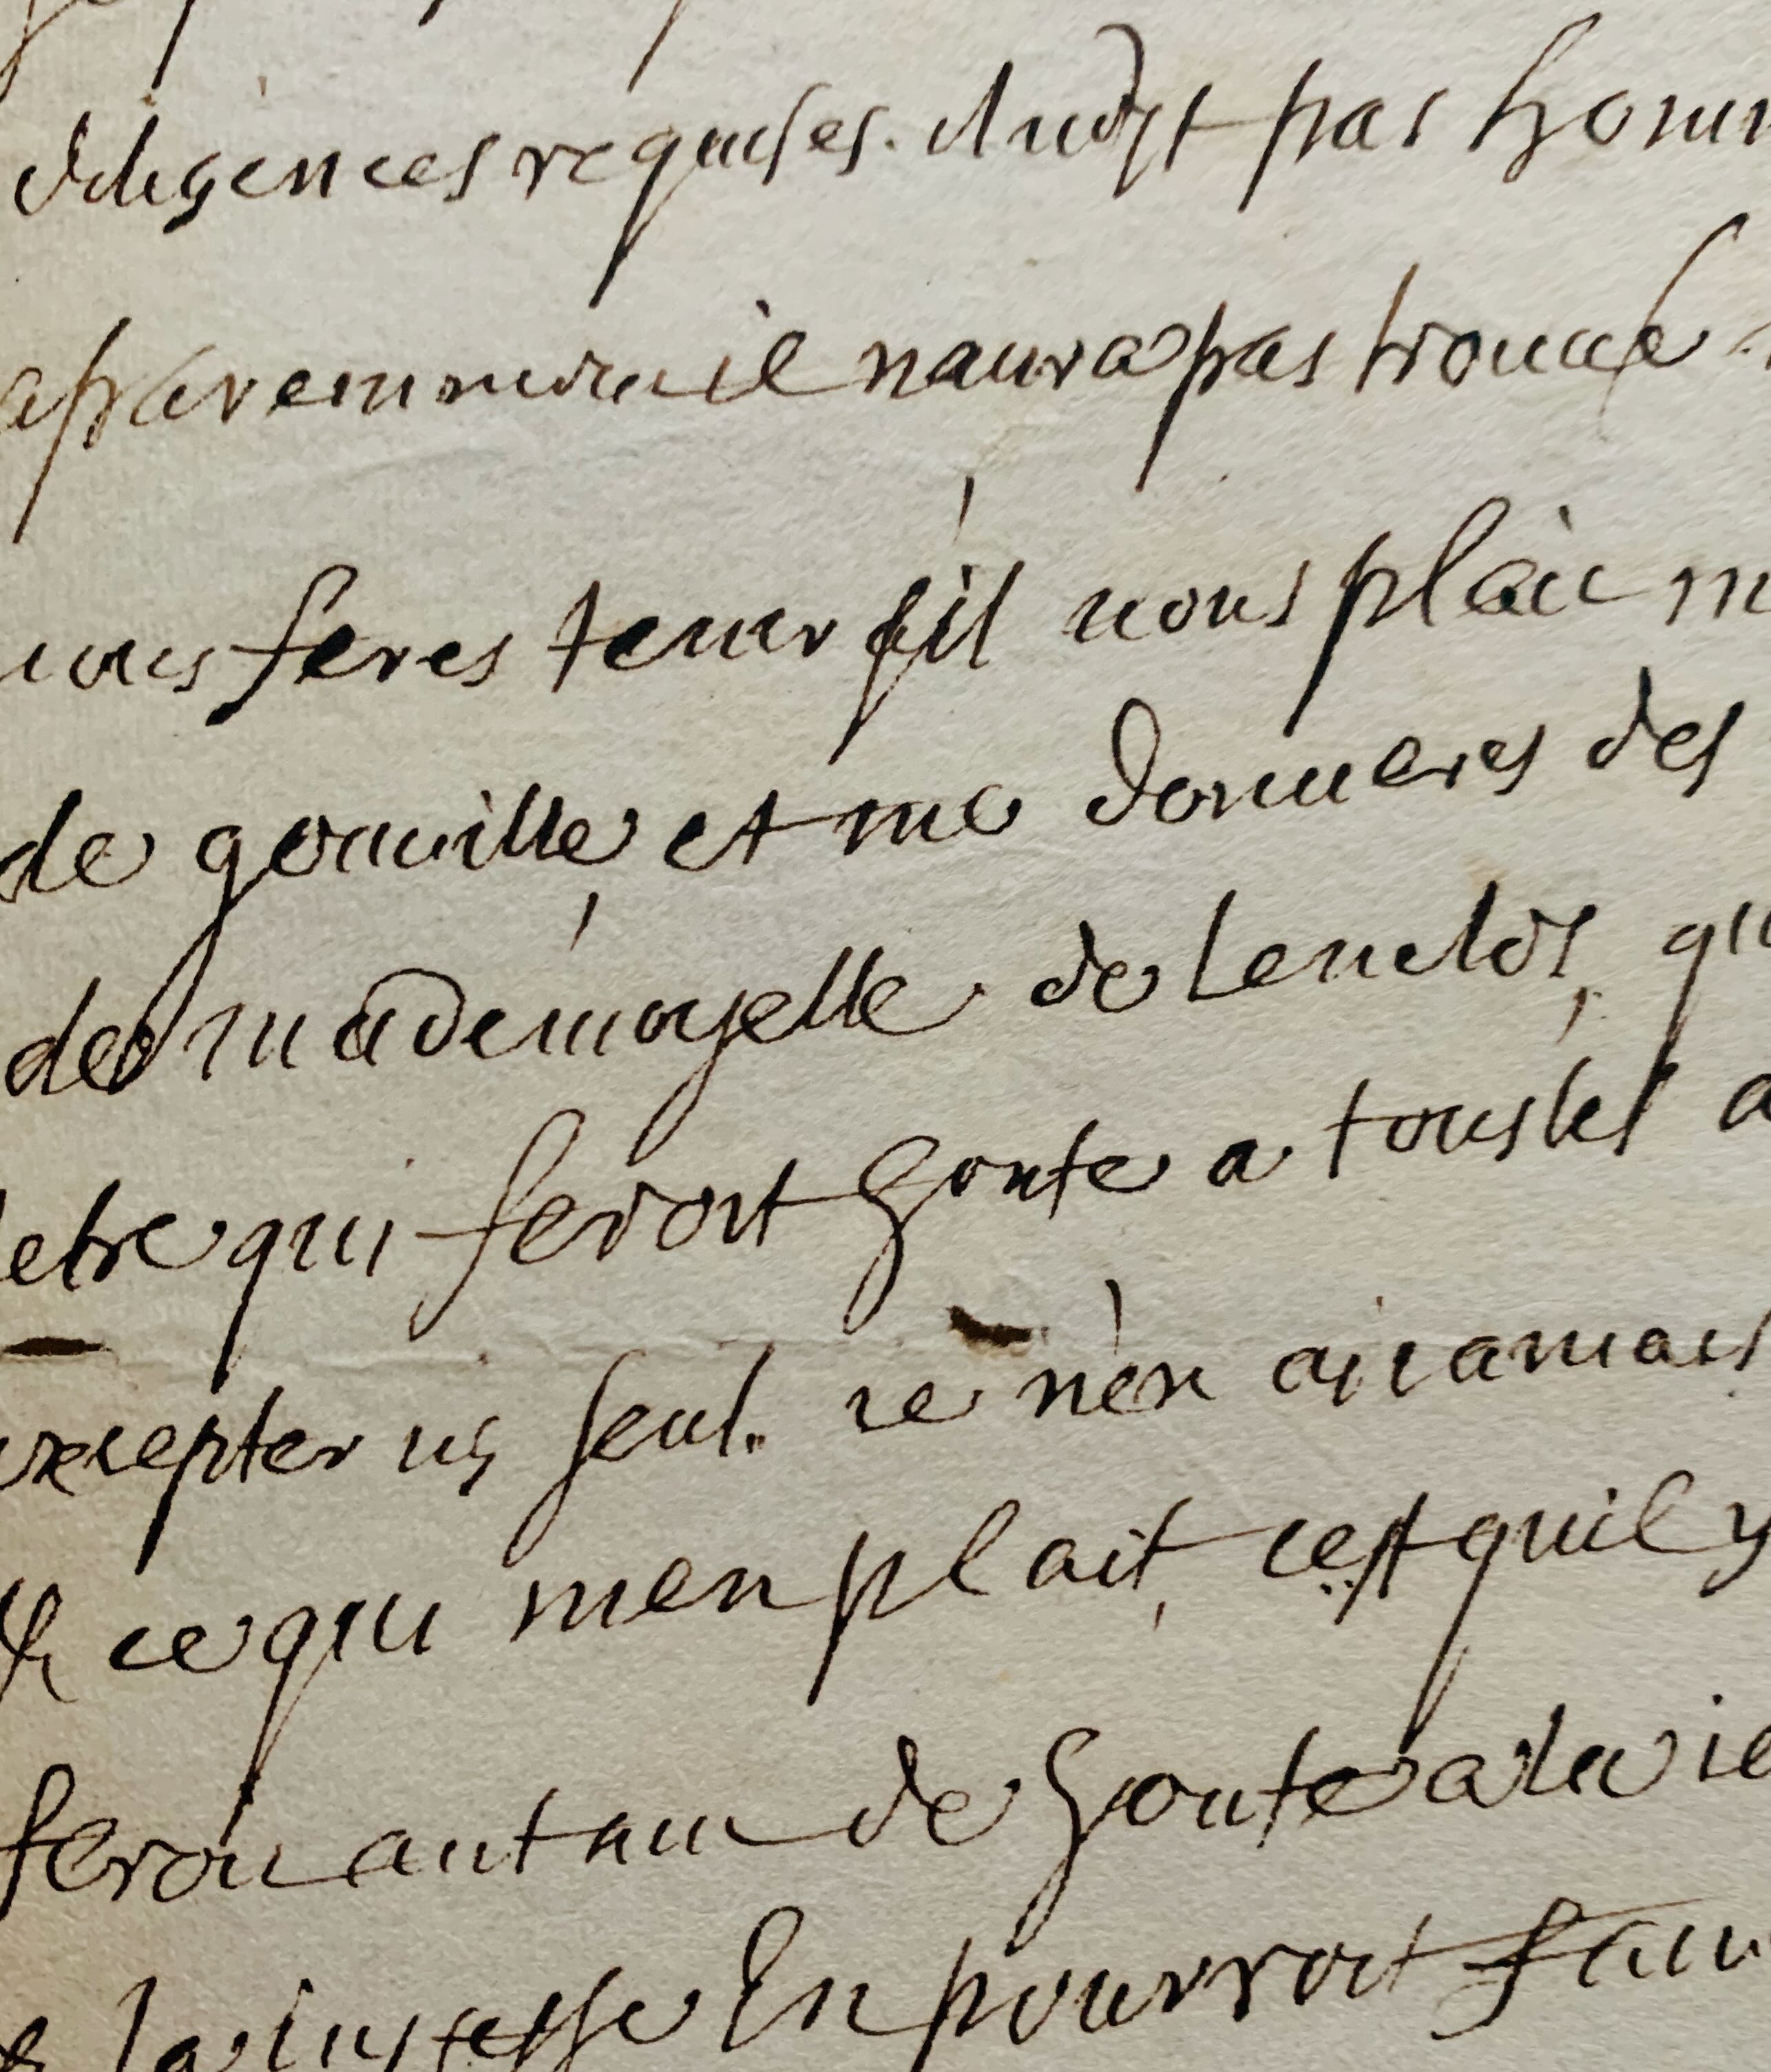 diligences requises. il nest pas homm
aparemment il naura pas trouué
uous feres tenir s'il uous plait m
de gouruille et me donneres des
de mademoyselle de Lenclos, qu
letre qui feroit honte a tous les a
excepter un seul. ie n'en ai iamais
& ce qui men plait, cest quil y
feroit autant de honte a la ie
la iustesse En pourroit fair